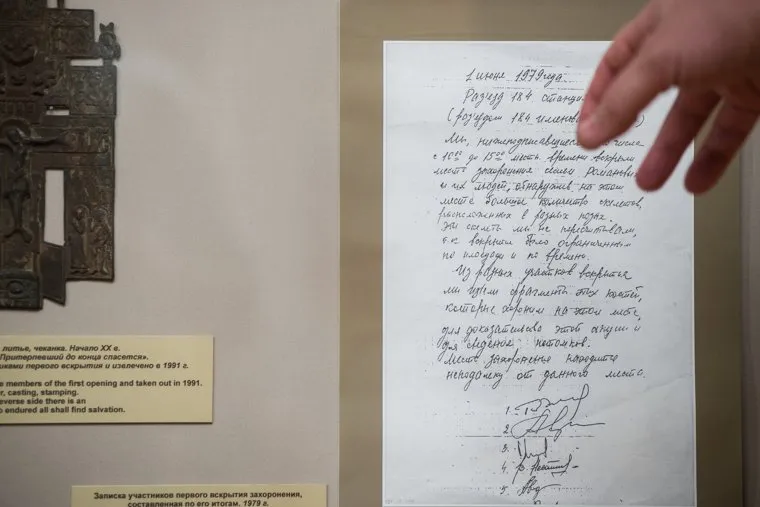 1 июня 1979 года.
Разъезд 184 станци
(разъездом 184 именов
Мы, нижеподписавшиеся числа
с 10⁰⁰ до 15⁰⁰ местн. времени вскрыли
место захоронения семьи Романовых
и их людей, обнаружив на этом
месте большое количество скелетов,
расположенных в разных позах.
Эти скелеты мы не пересчитывали,
т.к. вскрытие было ограниченным
по площади и по времени.
Из разных участков вскрытия
мы изъяли фрагменты тих костей,
которые хороним на этом месте,
для доказательства этой акции и
для сведения потомков.
Место захоронения находится
неподалёку от данного места.
1.
2.
3.
4.
5.
литье, чеканка. Начало XX в.
Притерпевший до конца спасется».
иками первого вскрытия и извлечено в 1991 г.
e members of the first opening and taken out in 1991.
r, casting, stamping.
everse side there is an
o endured all shall find salvation.
Записка участников первого вскрытия захоронения,
составленная по его итогам. 1979 г.